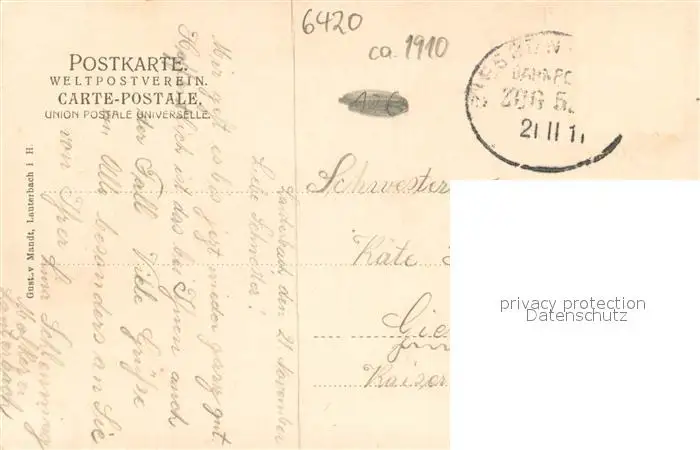 6420
ca. 1910
POSTKARTE.
WELTPOSTVEREIN.
CARTE-POSTALE.
UNION POSTALE UNIVERSELLE.
Gustav Mandt, Lauterbach i. H.
BAHNPO
ZUG 5
21 11 1
Lauterbach den 21 November
Liebe Schwester!
Mir geht es bis jezt wieder ganz gut.
Hoffentlich ist das bei Ihnen auch
der Fall Viele Grüße
an Alle besonders an Sie
von Ihrer
Lauterbach
Schwester
Käte
Gie
Kaiser
privacy protection
Datenschutz